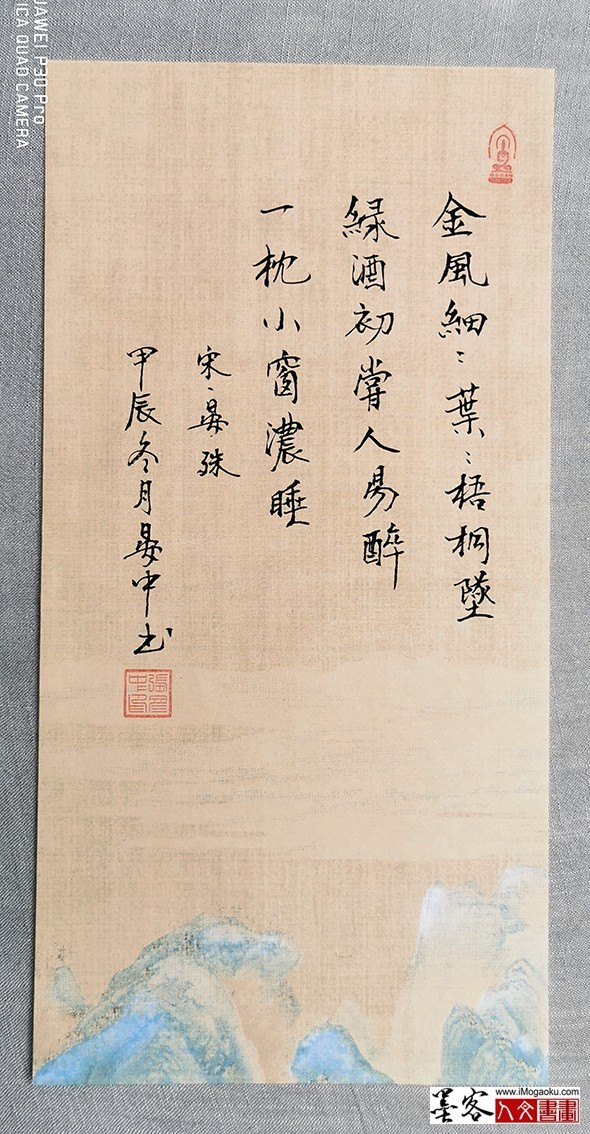 金風細〻葉〻梧桐墜
緑酒初嘗人易醉
一枕小窗濃睡
宋、晏殊
甲辰冬月晏中书
張晏中印
HUAWEI P30 Pro
LEICA QUAD CAMERA
www.iMogaoku.com
墨客人文書畫